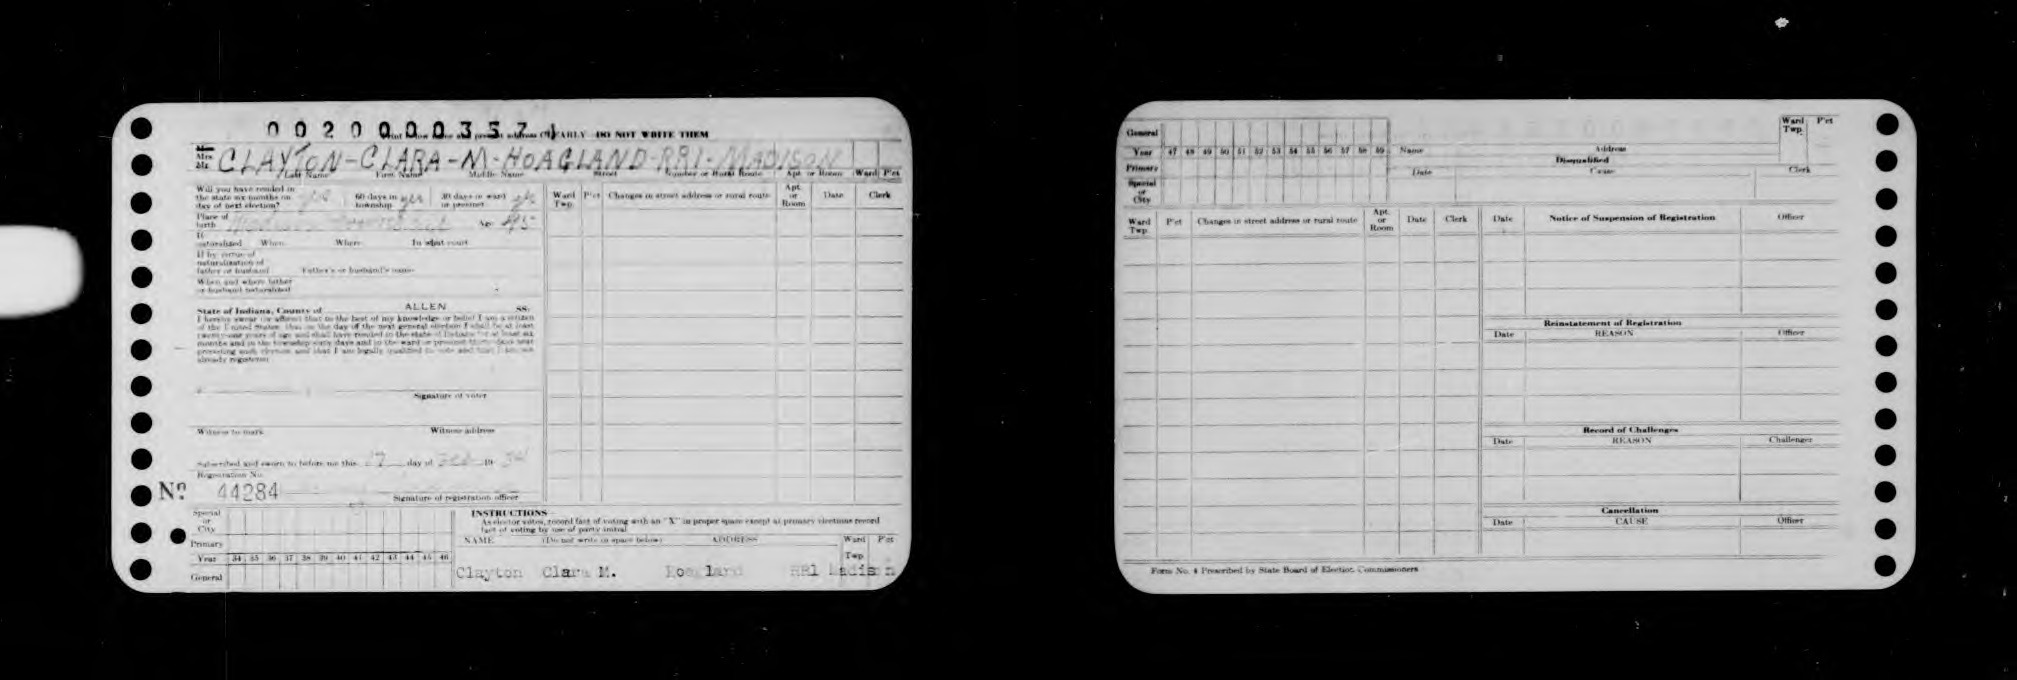 002000035
name and present address CLEARLY DO NOT WRITE THEM
Mrs. Mr. CLAYTON-CLARA-M-HOAGLAND-RR1-MADISON
Last Name First Name Middle Name Street Number or Rural Route Apt. or Room Ward P'ct
Will you have resided in the state six months on day of next election? 60 days in township yes 30 days in ward or precinct
Place of birth Age
If naturalized When Where In what court
If by virtue of naturalization of father or husband Father's or husband's name
When and where father or husband naturalized
State of Indiana, County of ALLEN SS:
I hereby swear (or affirm) that to the best of my knowledge or belief I am a citizen
of the United States; that on the day of the next general election I shall be at least
twenty-one years of age and shall have resided in the state of Indiana for at least six
months and in the township sixty days and in the ward or precinct thirty days next
preceding such election and that I am legally qualified to vote and that I am not
already registered
Signature of voter
Witness to mark Witness address
Subscribed and sworn to before me this 17 day of Feb 19 34
Registration No.
No. 44284
Signature of registration officer
Ward Twp. P'ct Changes in street address or rural route Apt. or Room Date Clerk
Special or City
Primary
Year 34 35 36 37 38 39 40 41 42 43 44 45 46
General
INSTRUCTIONS
As elector votes, record fact of voting with an "X" in proper space except at primary elections record
fact of voting by use of party initial
NAME (Do not write in space below) ADDRESS Ward Twp P'ct
Clayton Clara M. Hoagland RR1 Madison
General
Year 47 48 49 50 51 52 53 54 55 56 57 58 59
Primary
Special or City
Name Address Ward Twp. P'ct
Disqualified
Date Cause Clerk
Ward Twp. P'ct Changes in street address or rural route Apt. or Room Date Clerk
Date Notice of Suspension of Registration Officer
Reinstatement of Registration
Date REASON Officer
Record of Challenges
Date REASON Challenger
Cancellation
Date CAUSE Officer
Form No. 4 Prescribed by State Board of Election Commissioners